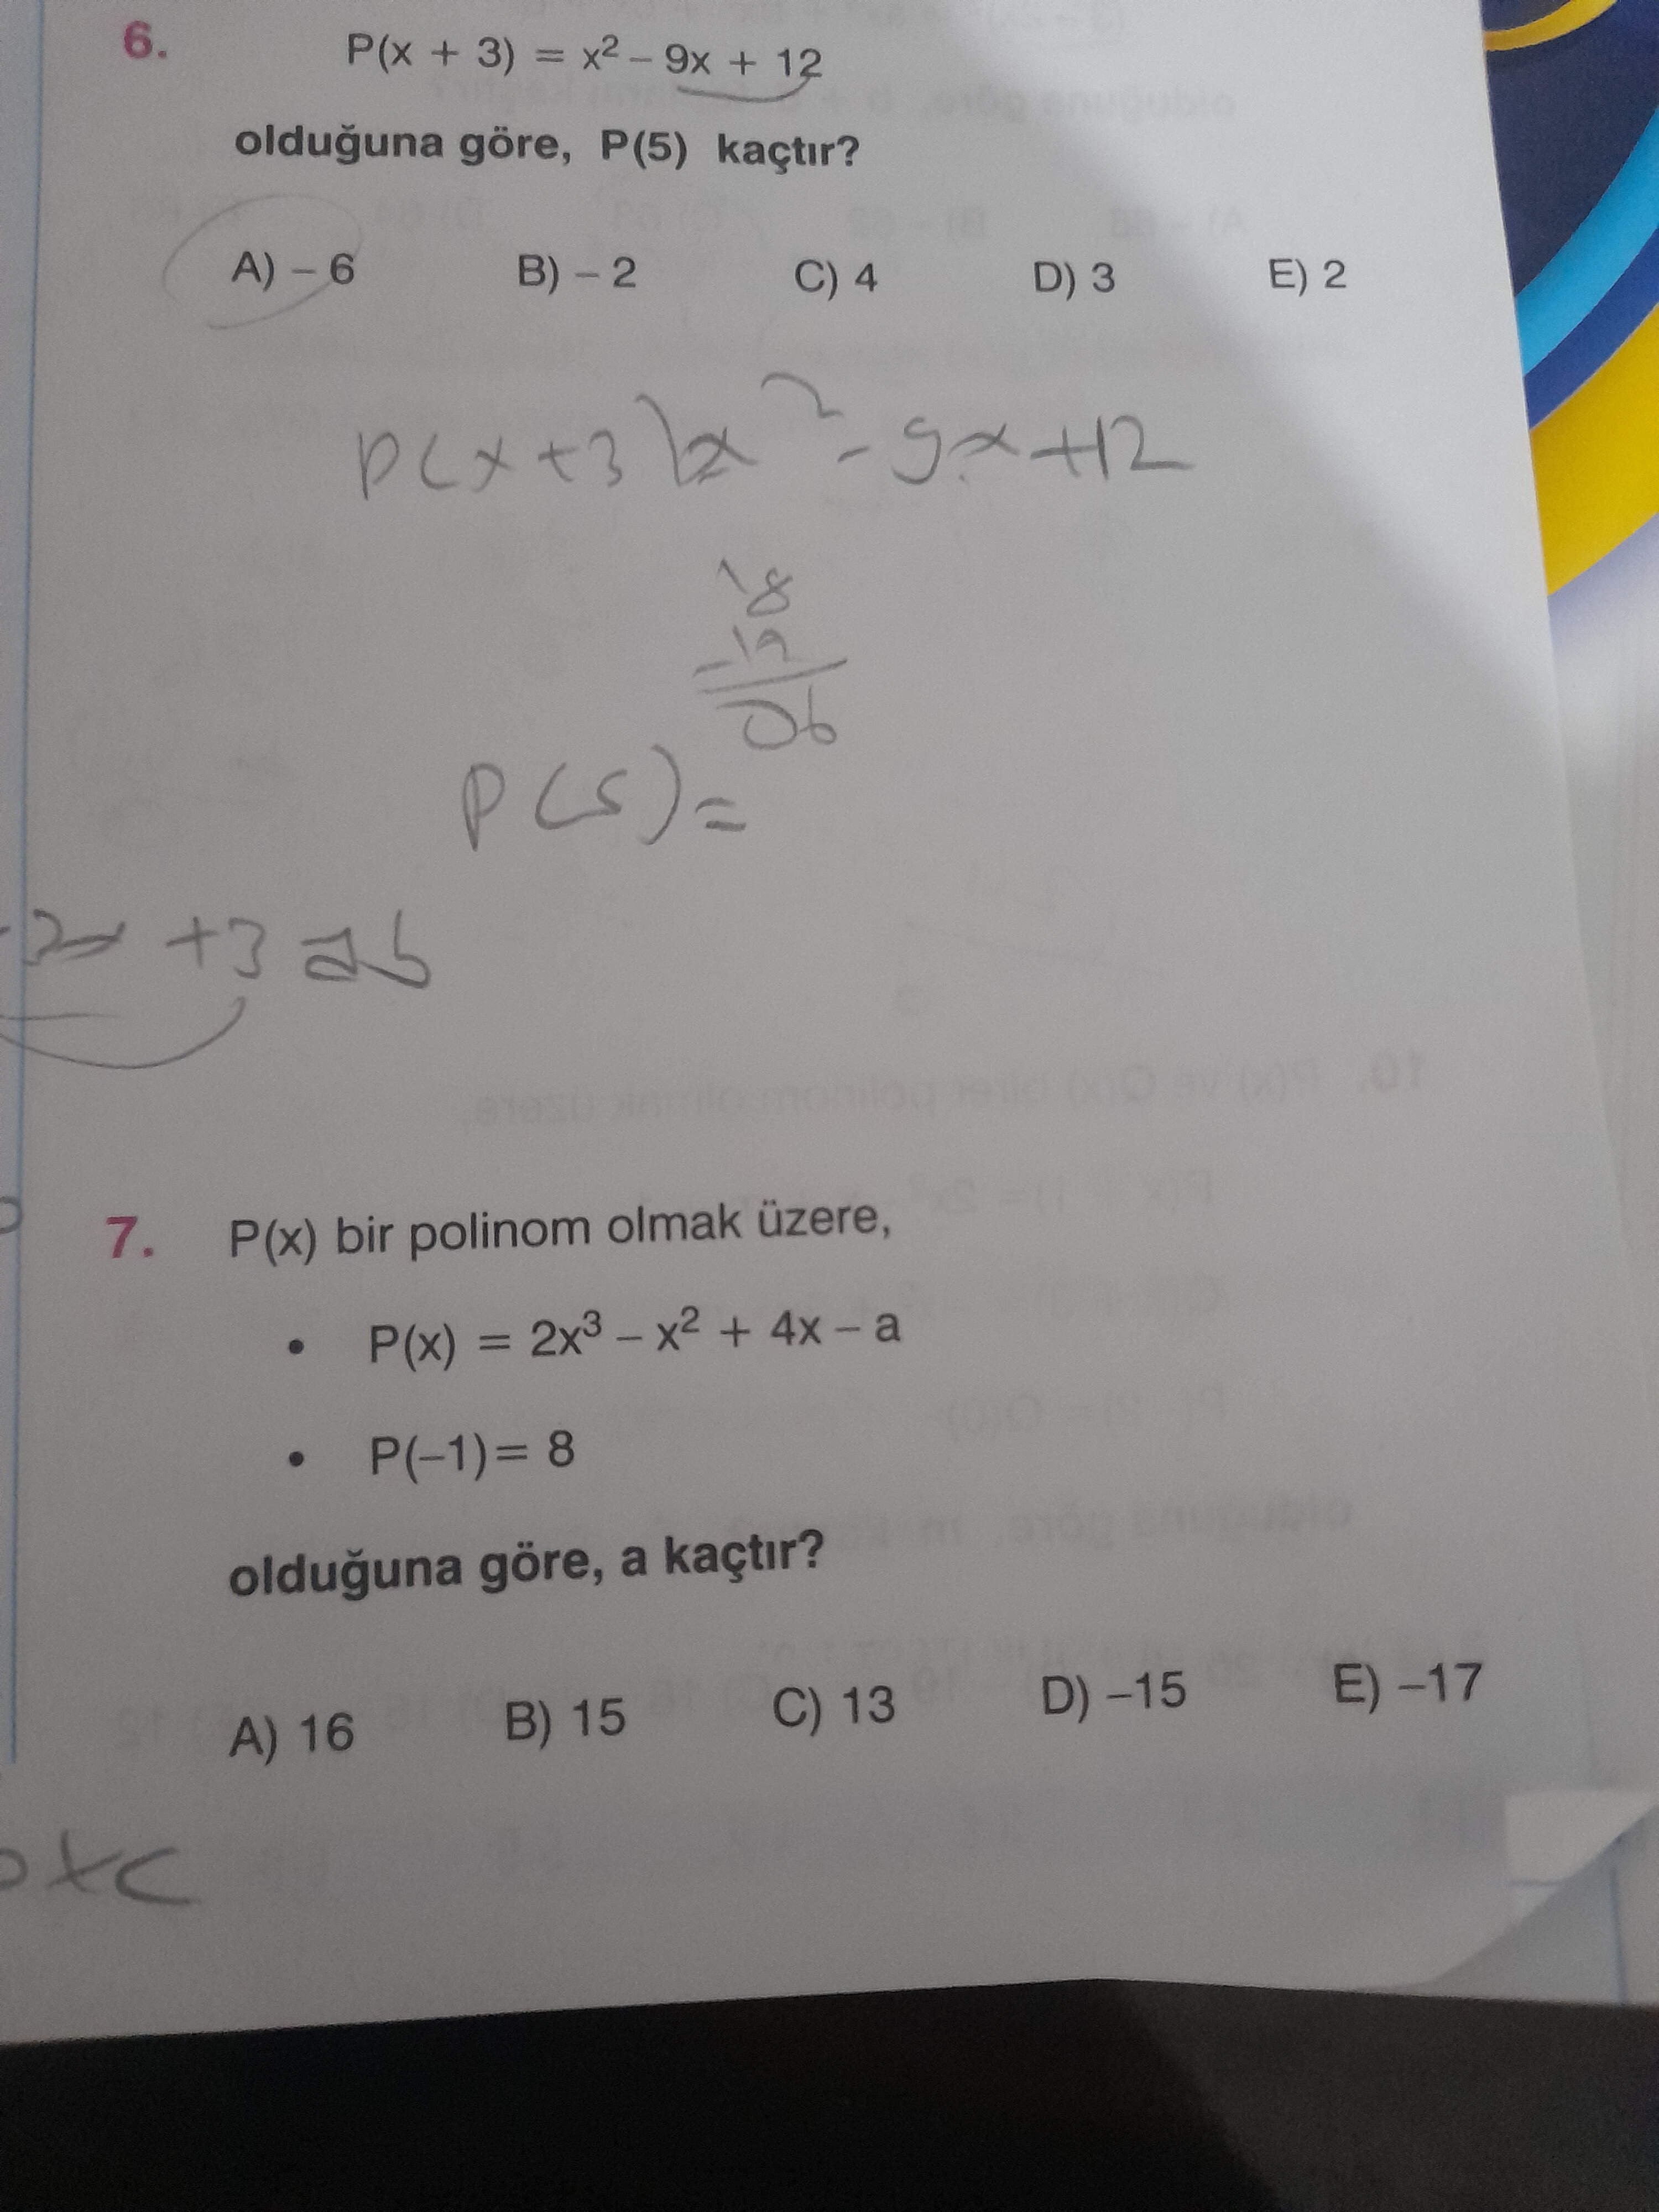 6. P(x + 3) = x² – 9x + 12
olduğuna göre, P(5) kaçtır?
A) – 6 B) – 2 C) 4 D) 3 E) 2
P(x+3) x² - 9x +12
18
-12
06
P(5)=
+3
7. P(x) bir polinom olmak üzere,
• P(x) = 2x³ – x² + 4x – a
• P(–1)= 8
olduğuna göre, a kaçtır?
A) 16 B) 15 C) 13 D) –15 E) –17